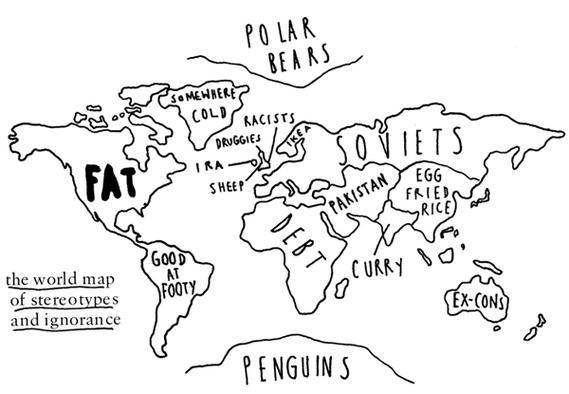 POLAR
BEARS
SOMEWHERE
COLD
RACISTS
DRUGGIES
IKEA
IRA
SHEEP
SOVIETS
FAT
PAKISTAN
EGG
FRIED
RICE
DEBT
CURRY
GOOD
AT
FOOTY
EX-CONS
the world map
of stereotypes
and ignorance
PENGUINS